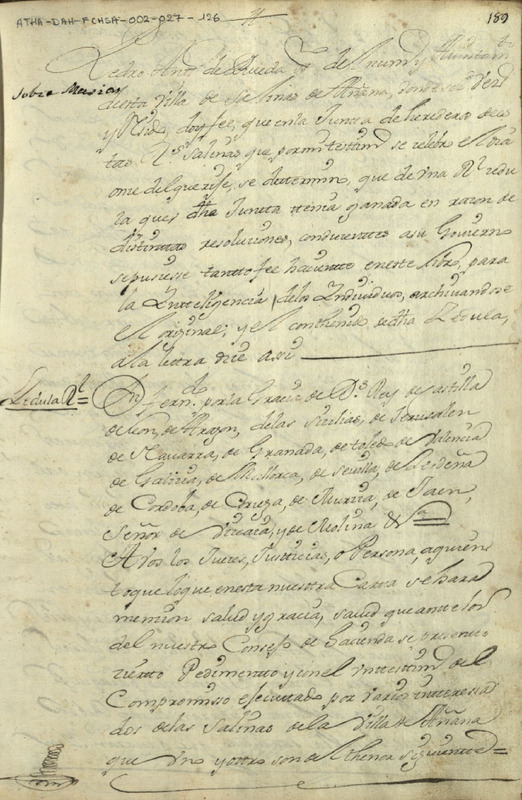 ATHA-DAH-FCHSA-002-027-126
189
Pedro Ant.º de Rueda ss.no del num.º y Aiuntam.to
Sobre Masias
desta Villa de Salinas de Añana, donde soi Vez.º
doi fee, que en la Junta de herederos de es
tas R.s Salinas que por mi testim.º se celebro el
que se determino, que de vna R.l zedu
la que dha Junta tenia ganada en razon de
distinttas resoluziones, conduzenttes a su Govierno
se pusiese tantto fee hazientte en este libro, para
la Intteligencia delos Indibiduos, archivandose
el original; y el conthenido de dha Zedula,
ala letra dize assi
Zedula R.l =
Dn Fern.do por la Gracia de D.s Rey de Castilla
de Leon, de Aragon, delas Sicilias, de Jerusalen
de Navarra, de Granada, de Toledo, de Valencia
de Galicia, de Mallorca, de Sevilla, de Cerdeña
de Cordoba, de Corzega, de Murcia, de Jaen,
Señor de Vizcaia, y de Molina &.a
A vos los Juezes, Justicias, o Persona, a quienes
toque lo que en esta nuestra Carta se hara
menzion salud y gracia, saved que ante los
del nuestro Consejo de hacienda se presento
ziertto Pedimento y con el testim.º del
Compromisso ejecuttado por varios intteresa
dos de las Salinas de la Villa de Añana
que vno y ottro son del thenor siguiente =